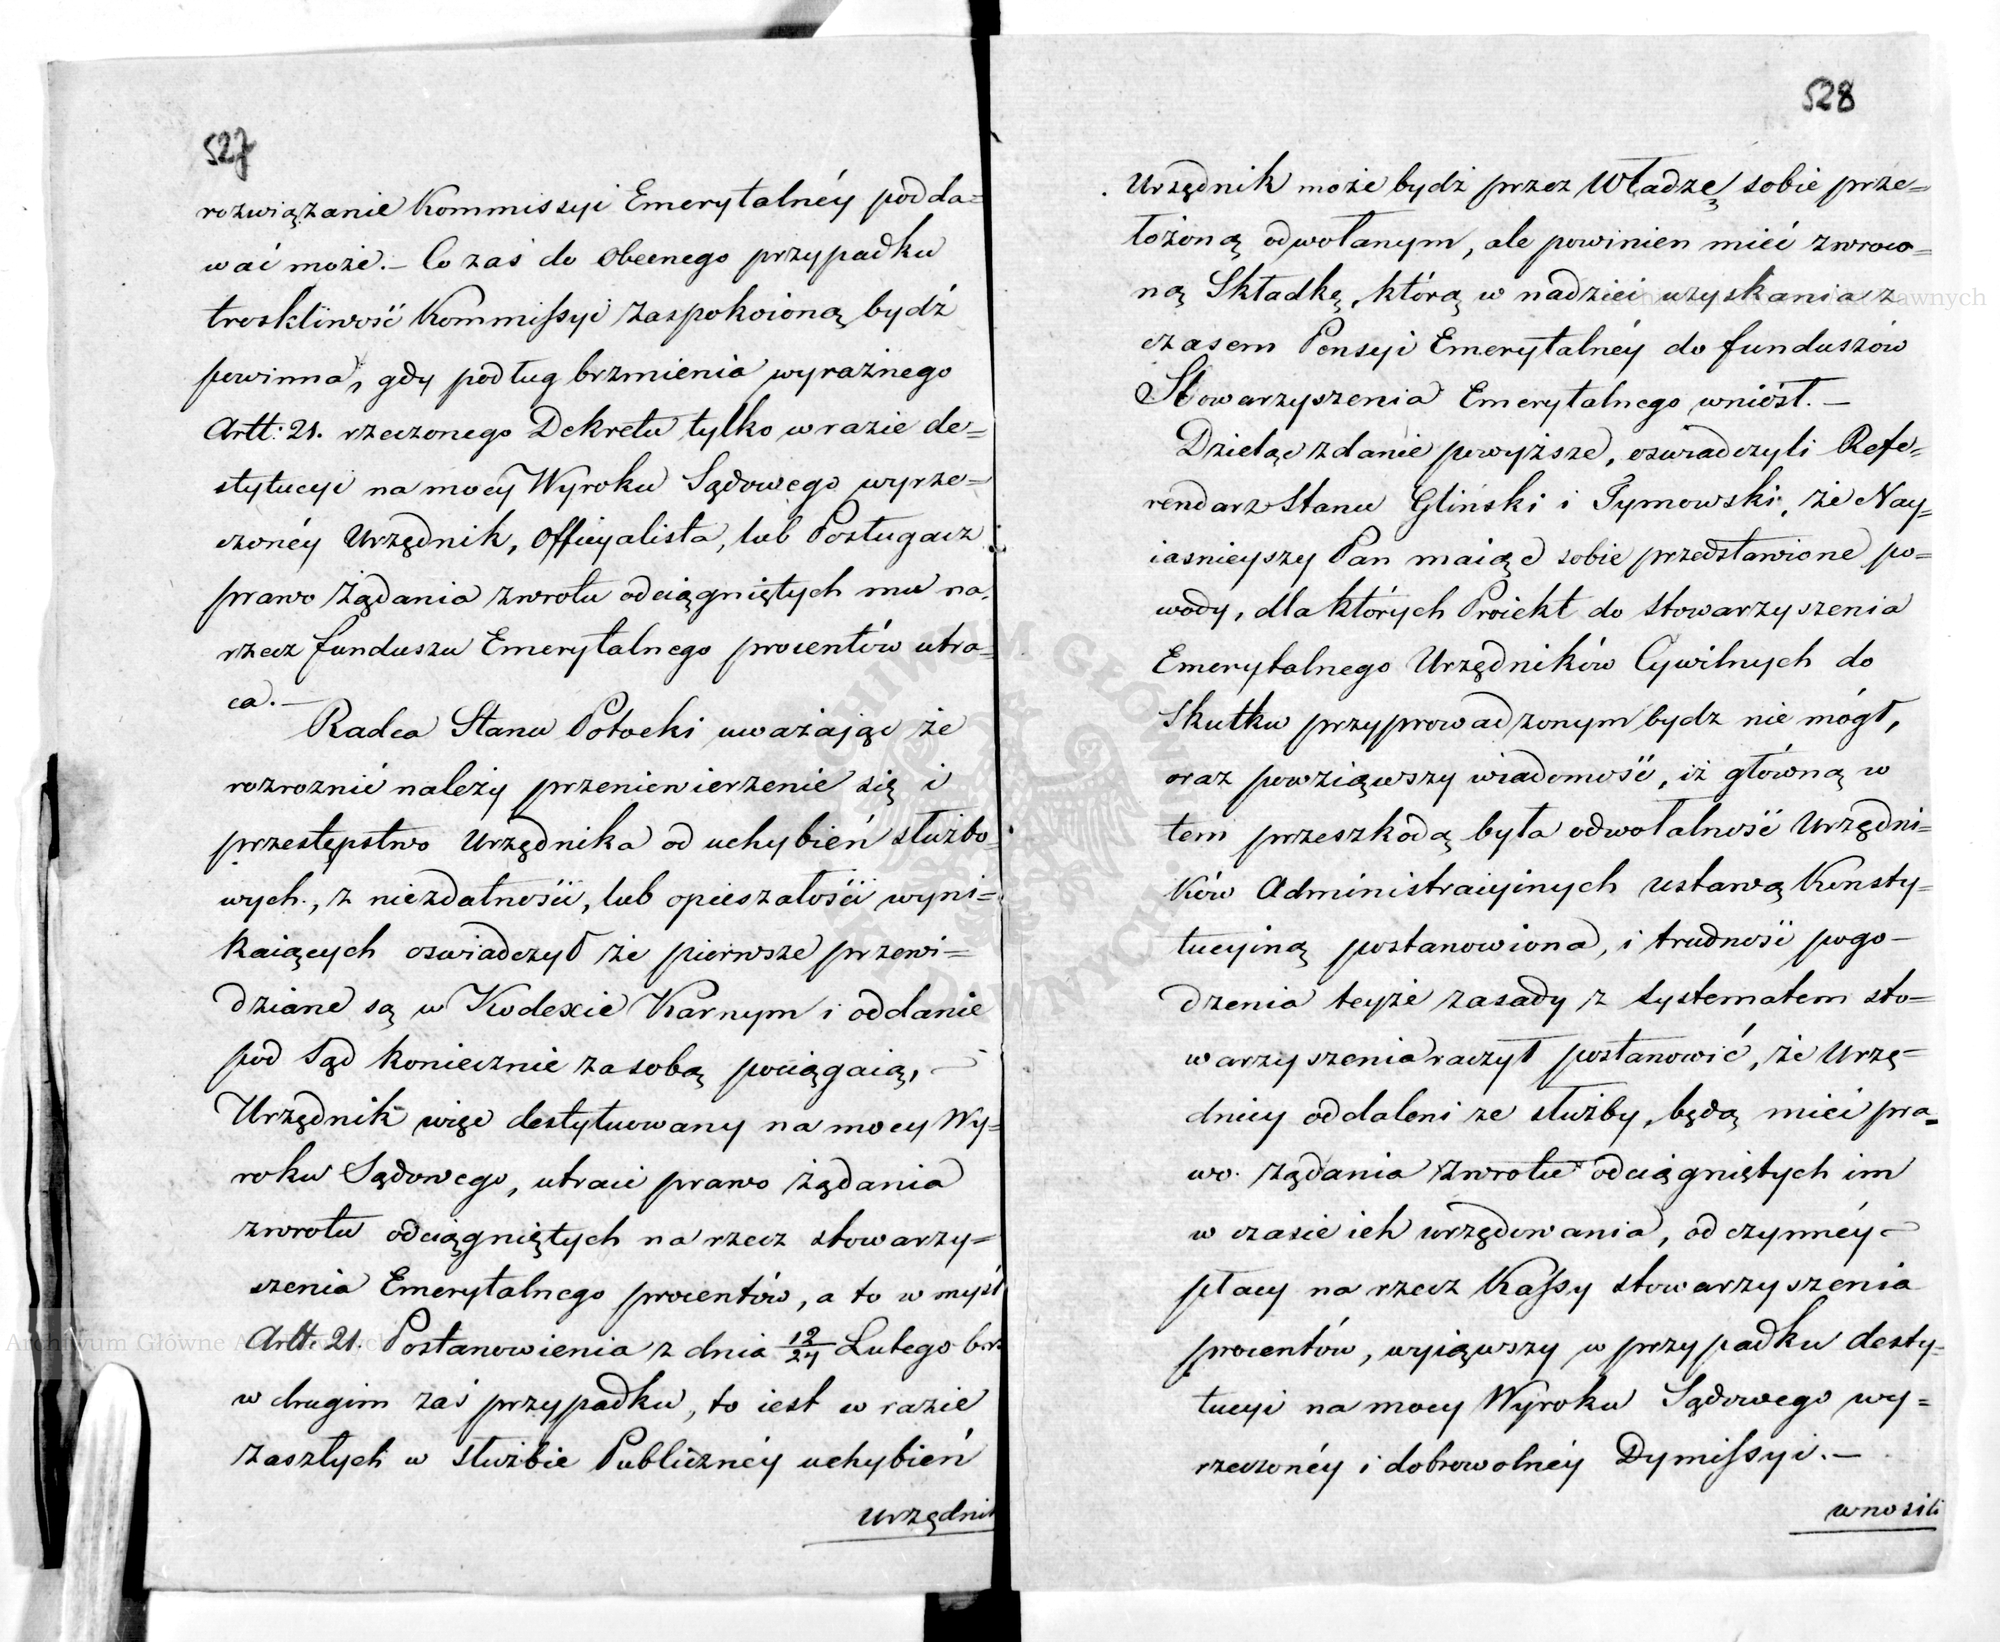 527
rozwiązanie Kommissyi Emerytalnéy podda=
wać może.– Co zaś do obecnego przypadku
troskliwość Kommissyi zaspokoioną bydź
powinna, gdy podług brzmienia wyraźnego
Artt: 21. rzeczonego Dekretu tylko w razie de=
stytucyi na mocy Wyroku Sądowego wyrze=
czonéy Urzędnik, Officyalista, lub Posługacz
prawo żądania zwrotu odciągniętych mu na
rzecz funduszu Emerytalnego procentów utra=
ca.–
Radca Stanu Potocki uważając że
rozroznić należy przeniewierzenie się i
przestępstwo Urzędnika od uchybień służbo=
wych, z niezdatności, lub opieszałości wyni=
kaiących oswiadczył że pierwsze przewi=
dziane są w Kodexie Karnym i oddanie
pod Sąd koniecznie za sobą pociągaią, –
Urzędnik więc destytuowany na mocy Wy=
roku Sądowego, utraci prawo żądania
zwrotu odciągniętych na rzecz stowarzy=
szenia Emerytalnego procentów, a to w myśl
Artt: 21. Postanowienia z dnia 12/24 Lutego b.r.
w drugim zaś przypadku, to iest w razie
zaszłych w służbie Publicznéy uchybień
Urzędnik
528
Urzędnik może bydź przez Władzę sobie prze=
łożoną odwołanym, ale powinien mieć zwroco=
ną Składkę, którą w nadziei uzyskania z
czasem Pensyi Emerytalnéy do funduszów
Stowarzyszenia Emerytalnego wniósł.–
Dzieląc zdanie powyższe, oswiadczyli Refe=
rendarz Stanu Gliński i Tymowski, że Nay=
iasnieyszy Pan maiąc sobie przedstawione po=
wody, dla których Proiekt do stowarzyszenia
Emerytalnego Urzędników Cywilnych do
skutku przyprowadzonym bydz nie mógł,
oraz powziąwszy wiadomość, iż główną w
tem przeszkodą była odwołalność Urzędni=
ków Administracyinych ustawą Konsty=
tucyiną postanowiona, i trudność pogo–
dzenia teyże zasady z systematem sto=
warzyszenia raczył postanowić, że Urzę=
dnicy oddaleni ze służby, będą mieć pra=
wo żądania zwrotu odciągniętych im
w czasie ich urzędowania, od czynnéy –
płacy na rzecz Kassy stowarzyszenia
procentów, wyiąwszy w przypadku desty=
tucyi na mocy Wyroku Sądowego wy=
rzeczonéy i dobrowolnéy Dymissyi.–
wnosili
Archiwum Główne Akt Dawnych